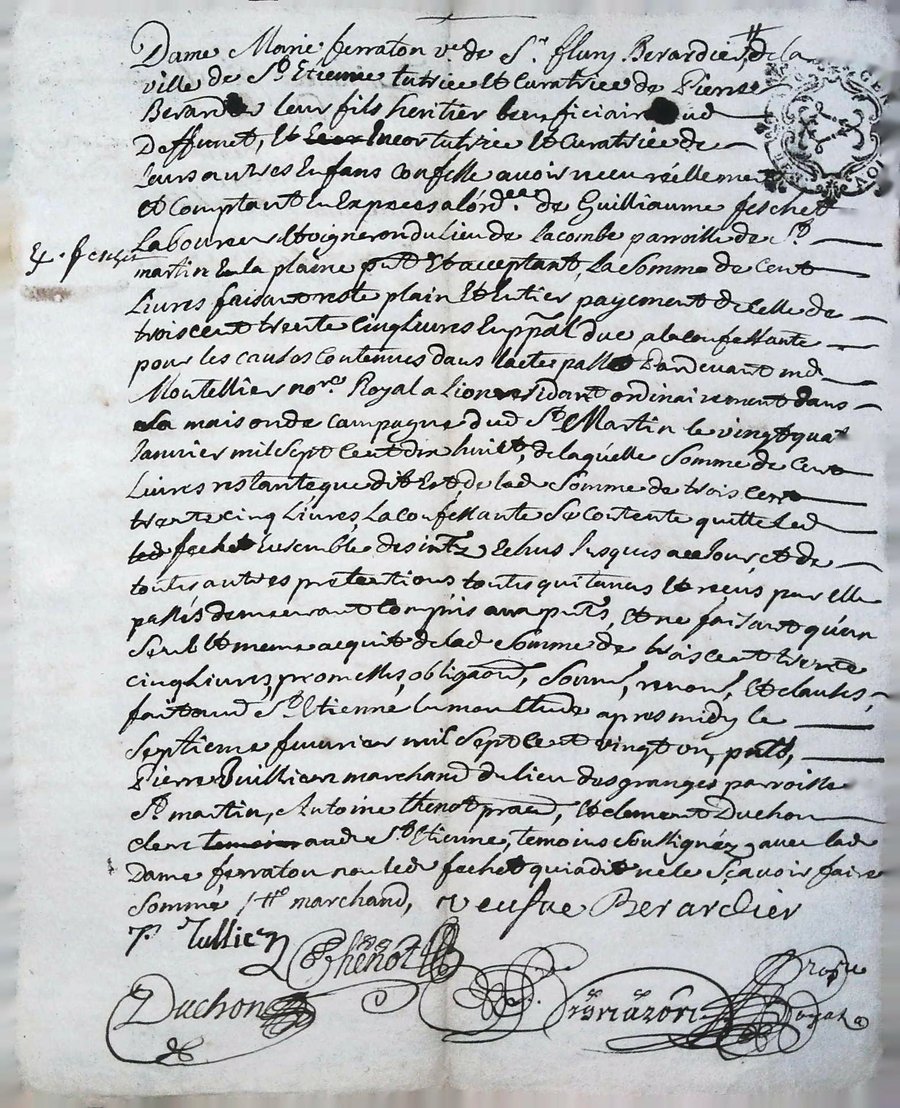 Dame Marie ferraton ve de Sr fleury Berardier, de la
ville de St Etienne tutrice et Curatrice de Pierre
Berardier leur fils heritier beneficiaire dud
Deffunct, et Encor tutrice et Curatrice de
leurs autres Enfans confesse avoir receu réellement
et Comptant En Expeces a lord.re de Guilliaume feschet
Laboureur et vigneron du lieu de lacombe parroisse de St
martin En la plaine pnt et acceptant, La Somme de Cent
Livres faisant reste plain et Entier payement de Celle de
trois cent trente cinq livres En ppal due a la confessante
pour les causes contenues dans lacte passé Pardevant me
Montellier nore Royal a Lion residant ordinairement dans
la maison de campagne dud St Martin le vingt quat
Janvier mil sept cent dix huict, de laquelle Somme de Cent
Livres restante que dit Est, de lad Somme de trois cent
trente cinq Livres, La confessante Se contente quitte Led
led fechet Ensemble des intz Echus Jusques a ce Jour, et de
toutes autres pretentions toutes quitances et reçus par Elle
passés demeurant Compris aux pntes, et ne faisant qu'un
Seul et meme acquit de lad Somme de trois cent trente
cinq Livres, promesses, obligaons, Soums, renons, et clauses,
fait aud St Etienne En mon Etude apres midy le
Septieme fevrier mil Sept Cent vingt on, pntes,
Pierre Tuillier marchand du lieu des granges parroisse
St martin, Antoine thenot praen, et clement Duchon
clerc aud St Etienne, temoins Soussignéz avec lad
Dame ferraton non led fechet qui a dit ne le Sçavoir faire
Sommé, marchand, veufve Berardier
P. Tullier
Thenot
Duchon